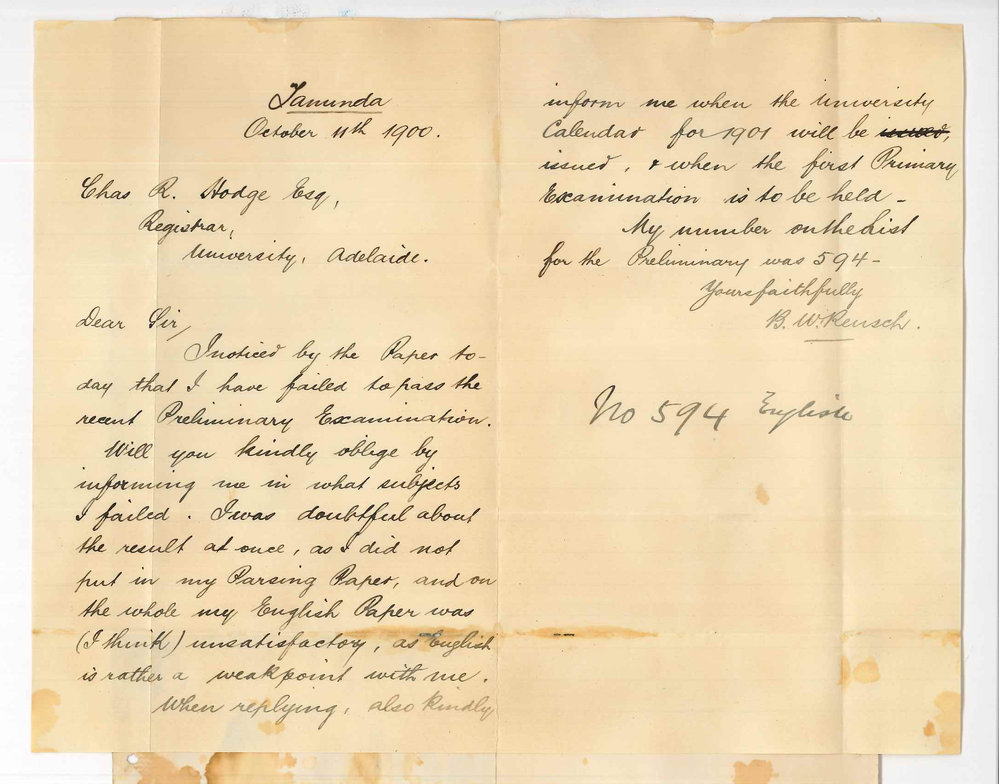 Tanunda
October 11th 1900.
Chas R. Hodge Esq,
Registrar,
University, Adelaide.
Dear Sir,
I noticed by the Paper to-
day that I have failed to pass the
recent Preliminary Examination.
Will you kindly oblige by
informing me in what subjects
I failed. I was doubtful about
the result at once, as I did not
put in my Parsing Paper, and on
the whole my English Paper was
(I think) unsatisfactory, as English
is rather a weak point with me.
When replying, also kindly
inform me when the University
Calendar for 1901 will be issued,
issued, & when the first Primary
Examination is to be held -
My number on the List
for the Preliminary was 594 -
Yours faithfully
B. W. Rensch.
No 594 English